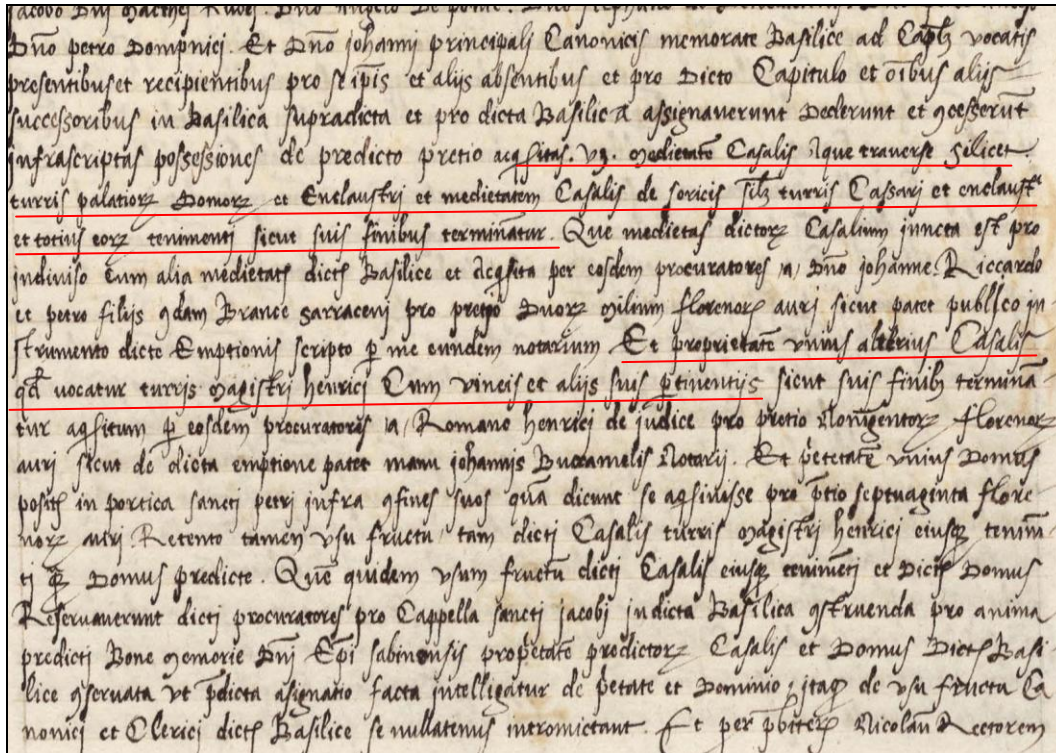 Jacobo Dnj Matthej Rubej. Dno Angelo De
Dno petro Dompnicj. Et Dno johannj principalj Canonicis memorate Basilice ad Caplz vocatis
presentibus et recipientibus pro se ipis et alijs absentibus et pro Dicto Capitulo et oibus alijs
successoribus in Basilica supradicta et pro dicta Basilica assignaverunt Dederunt et 9cesserut
infrascriptas possessiones de predicto pretio aq̃sitas. vz. medietate Casalis Aque traverse silicet
turris palatiorz Domorz et Enclaustrj et medietatem Casalis de soricis silz turris Cassarj et enclaustr
et totius eorz tenimentj sicut suis finibus terminatur. Que medietas dictorz Casalium juncta est pro
indiviso Cum alia medietate dicte Basilice et Acq̃sita per eosdem procuratores a Dno johanne Riccardo
et petro filijs qdam Brance sarracenj pro pretio Duorz milium florenorz aurj sicut patet publico in
strumento dicte Emptionis scripto p me eundem notarium Et proprietate vnius alterius Casalis
qd vocatur turris magistrj henricj Cum vineis et alijs suis ptinentijs sicut suis finibz termina
tur aq̃situm p eosdem procuratores a Romano henricj de judice pro pretio Nongentorz florenorz
aurj sicut de dicta emptione patet manu johannis Bucamelis Notarij. Et petetate vnius Domus
posite in portica sanctj petrj infra 9fines suos qua dicunt se aq̃sivisse pro ptio septuaginta flore
norz aurj. Retento tamen vsu fructu tam dictj Casalis turris magistrj henricj eiusq tenim
tj q Domus predicte. Que quidem vsum fructu dictj Casalis eiusq tenimetj et Dicte Domus
Reservaverunt dictj procuratores pro Cappella sanctj jacobj in dicta Basilica 9struenda pro anima
predictj Bone memorie Dnj Epi sabinensis propetate predictorz Casalis et Domus Dicte Basi
lice 9servata vt pdicta asignatio facta intelligatur de petate et Dominio itaq de vsu fructu Ca
nonicj et Clericj dicte Basilice se nullatenus intromictant. Et per pbiterz Nicolau Rectorem